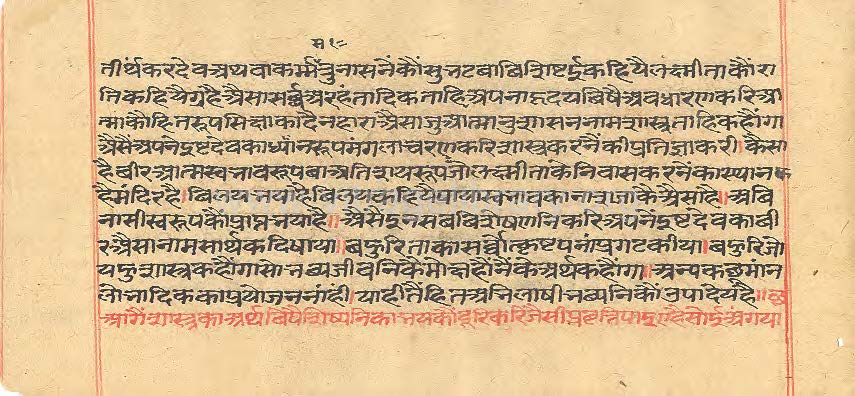 तीर्थकरदेव अथवा कर्मांनुनासनैंकौं सुभटवा बिशिष्ट ई कहियै लक्ष्मीताकौं रा
ति कहियै ग्रहै अैसा सर्व अरहंतादिकताहि अपना हृदय बिषै अवधारणकरि आ
त्माकौ हितरूप सिक्षाका देनहारा अैसा जु आत्मानुशासन नाम शास्त्र ताहि कहौंगा
अैसैं अपनें इष्टदेवका ध्यांनरूप मंगलाचरणकरि शास्त्र करनैंकी प्रतिज्ञा करी। कैसा
है बीर आत्मस्वभावरूप बा अतिशयरूप जो लक्ष्मी ताके निवास करनेंका स्थानक
है मंदिर है। बिलय भया है बिलय कहियै पापस्वभावका नाश जाकै अैसा है॥ अबि
नासी स्वरूपकौं प्राप्त भया है॥ अैसै इन सब बिशेषणनिकरि अपनें इष्टदेवका बी
र अैसा नाम सार्थक दिषाया॥ बहुरि ताका सर्वोत्कृष्टपनां प्रगट कीया। बहुरि जो
यहु शास्त्र कहौंगा सो भव्य जीवनिकै मोक्ष होंनैंके अर्थ कहौंगा। अन्य कछु मांन
लोभादिकका प्रयोजन नांही। याहीतैं हित अभिलाषी भव्यनिकौं उपादेय है॥छ
आगैं शास्त्रका अर्थ बिषै शिष्यनिका भयकौं दूरि करि जैसी प्रवृत्ति पाइए है सो ई